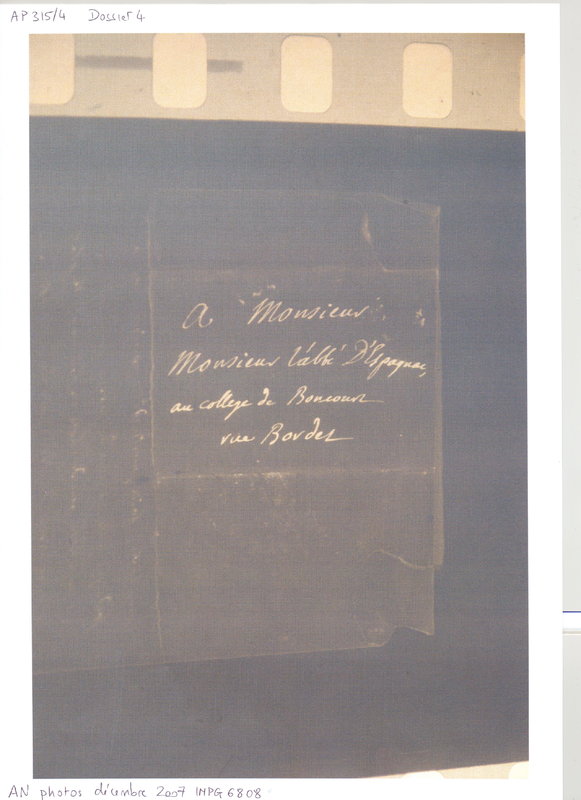 AP 315/4 Dossier 4
A Monsieur
Monsieur l'abbé D'Espagnac,
au college de Boncourt
rue Bordet
AN photos décembre 2007 IMPG 6808